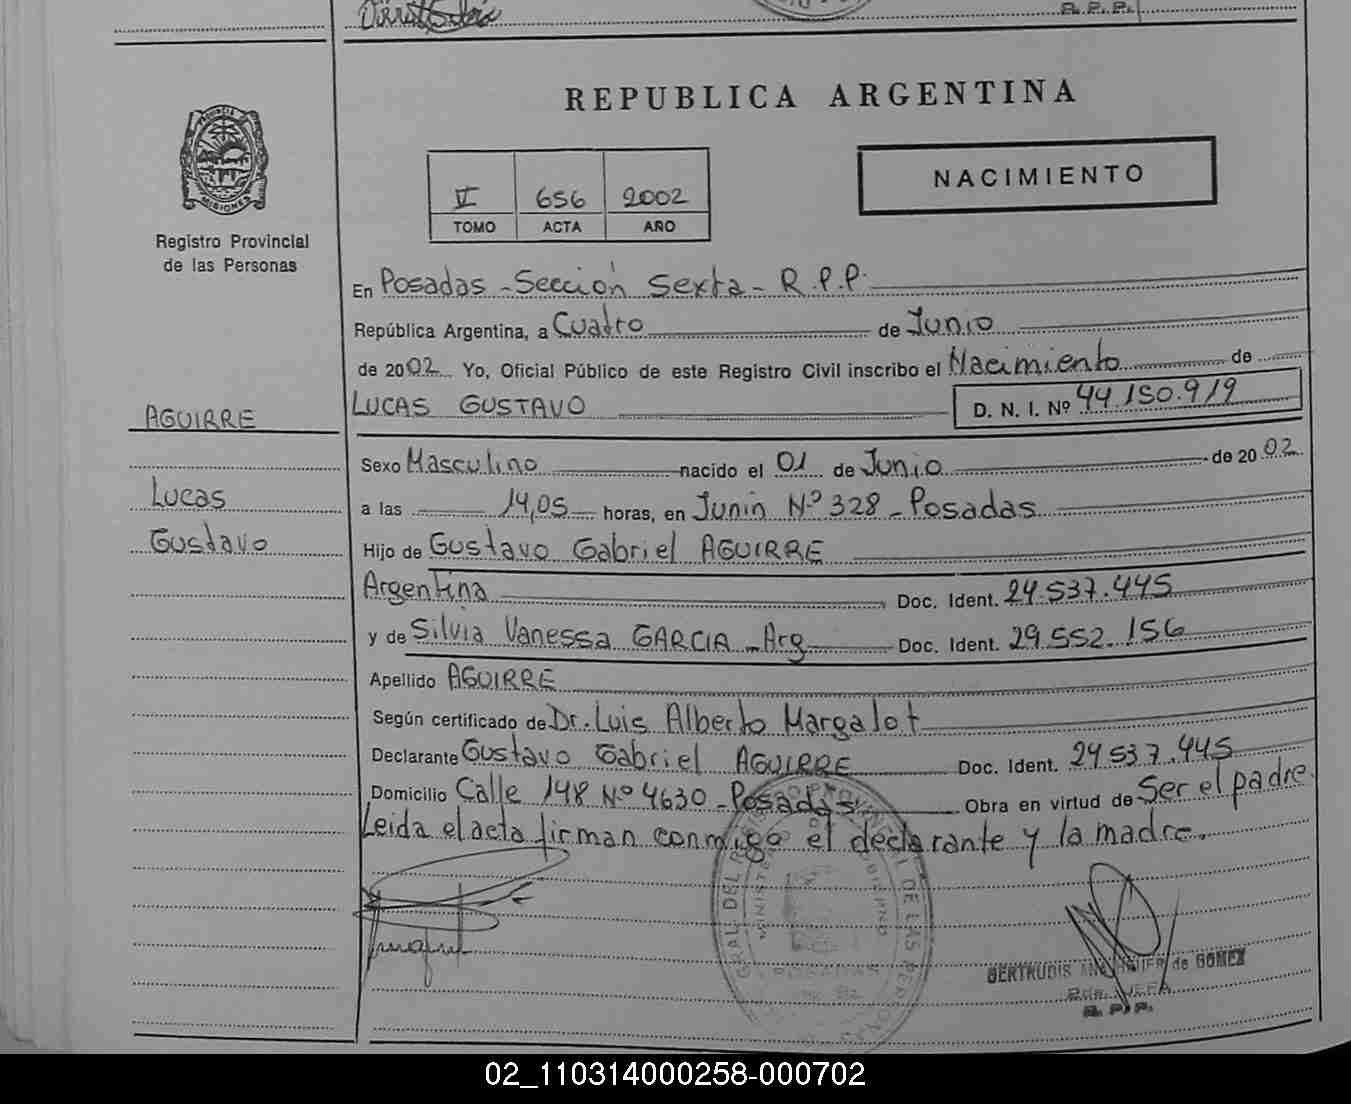 R. P. P.
REPUBLICA ARGENTINA
PROVINCIA DE
MISIONES
Registro Provincial
de las Personas
II 656 2002
TOMO ACTA AÑO
NACIMIENTO
En Posadas - Sección Sexta - R.P.P.
República Argentina, a Cuatro de Junio
de 2002 Yo, Oficial Público de este Registro Civil inscribo el Nacimiento de
LUCAS GUSTAVO D. N. I. Nº 44.150.919
AGUIRRE
Lucas
Gustavo
Sexo Masculino nacido el 01 de Junio de 2002
a las 14,05 horas, en Junín Nº 328 - Posadas
Hijo de Gustavo Gabriel AGUIRRE
Argentina, Doc. Ident. 24.537.445
y de Silvia Vanessa GARCIA - Arg Doc. Ident. 29.552.156
Apellido AGUIRRE
Según certificado de Dr. Luis Alberto Margalot
Declarante Gustavo Gabriel AGUIRRE Doc. Ident. 24537.445
Domicilio Calle 148 Nº 4630 - Posadas Obra en virtud de Ser el padre.
Leida el acta firman conmigo el declarante y la madre.
GRAL. DEL REGISTRO PROVINCIAL DE LAS PERSONAS
POSADAS
GERTRUDIS de GOMEZ
2da. JEFA
R. P. P.
02_110314000258-000702